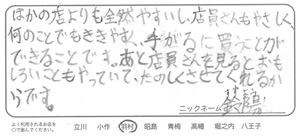 ほかの店よりも全然やすいし、店員さんもやさしく、
何のことでもききやすく、手がるに買うことが
できることです。あと店員さんを見るとおも
しろいこともやっていて、たのしくさせてくれるか
らです。
ニックネーム
よく利用されるお店を
○で囲んでください。
立川 小作 羽村 昭島 青梅 高幡 堀之内 八王子